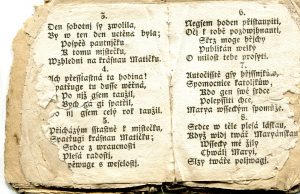 3.
Den sobotnj sy zwolila,
By w ten den uctěna byla;
Pospěš pautnjčku
K tomu mjstečku,
Wzhlednj na krásnau Matičku.
4.
Ach přesstiastná ta hodina!
patřuge tu dusse wěrná,
Po njž gsem tauzil,
Bych ga gi spatřil,
po nj gsem celý rok tauzil.
5.
Přicházým sstiastně k mjstečku,
Spatřugi krásnau Matičku;
Srdce z wraucnosti
Plesá radostj,
z weselosti.
6.
Negsem hoden přistaupiti,
Očj k tobě pozdwihnauti,
Skrz moge hřjchy
Publikán welky
O milost tebe prosyti.
7.
Autočisstě gsy hřjssnjků,
Spomocnice katoljků,
Kdo gen swé srdce
Polepssiti chce,
Marya wsseckým spomůže.
8.
Srdce w těle plesá láskau,
Když widj twář Maryánskau
Wssecky mé žily
Chwálj Maryi,
Slzy twáře poljwagj.